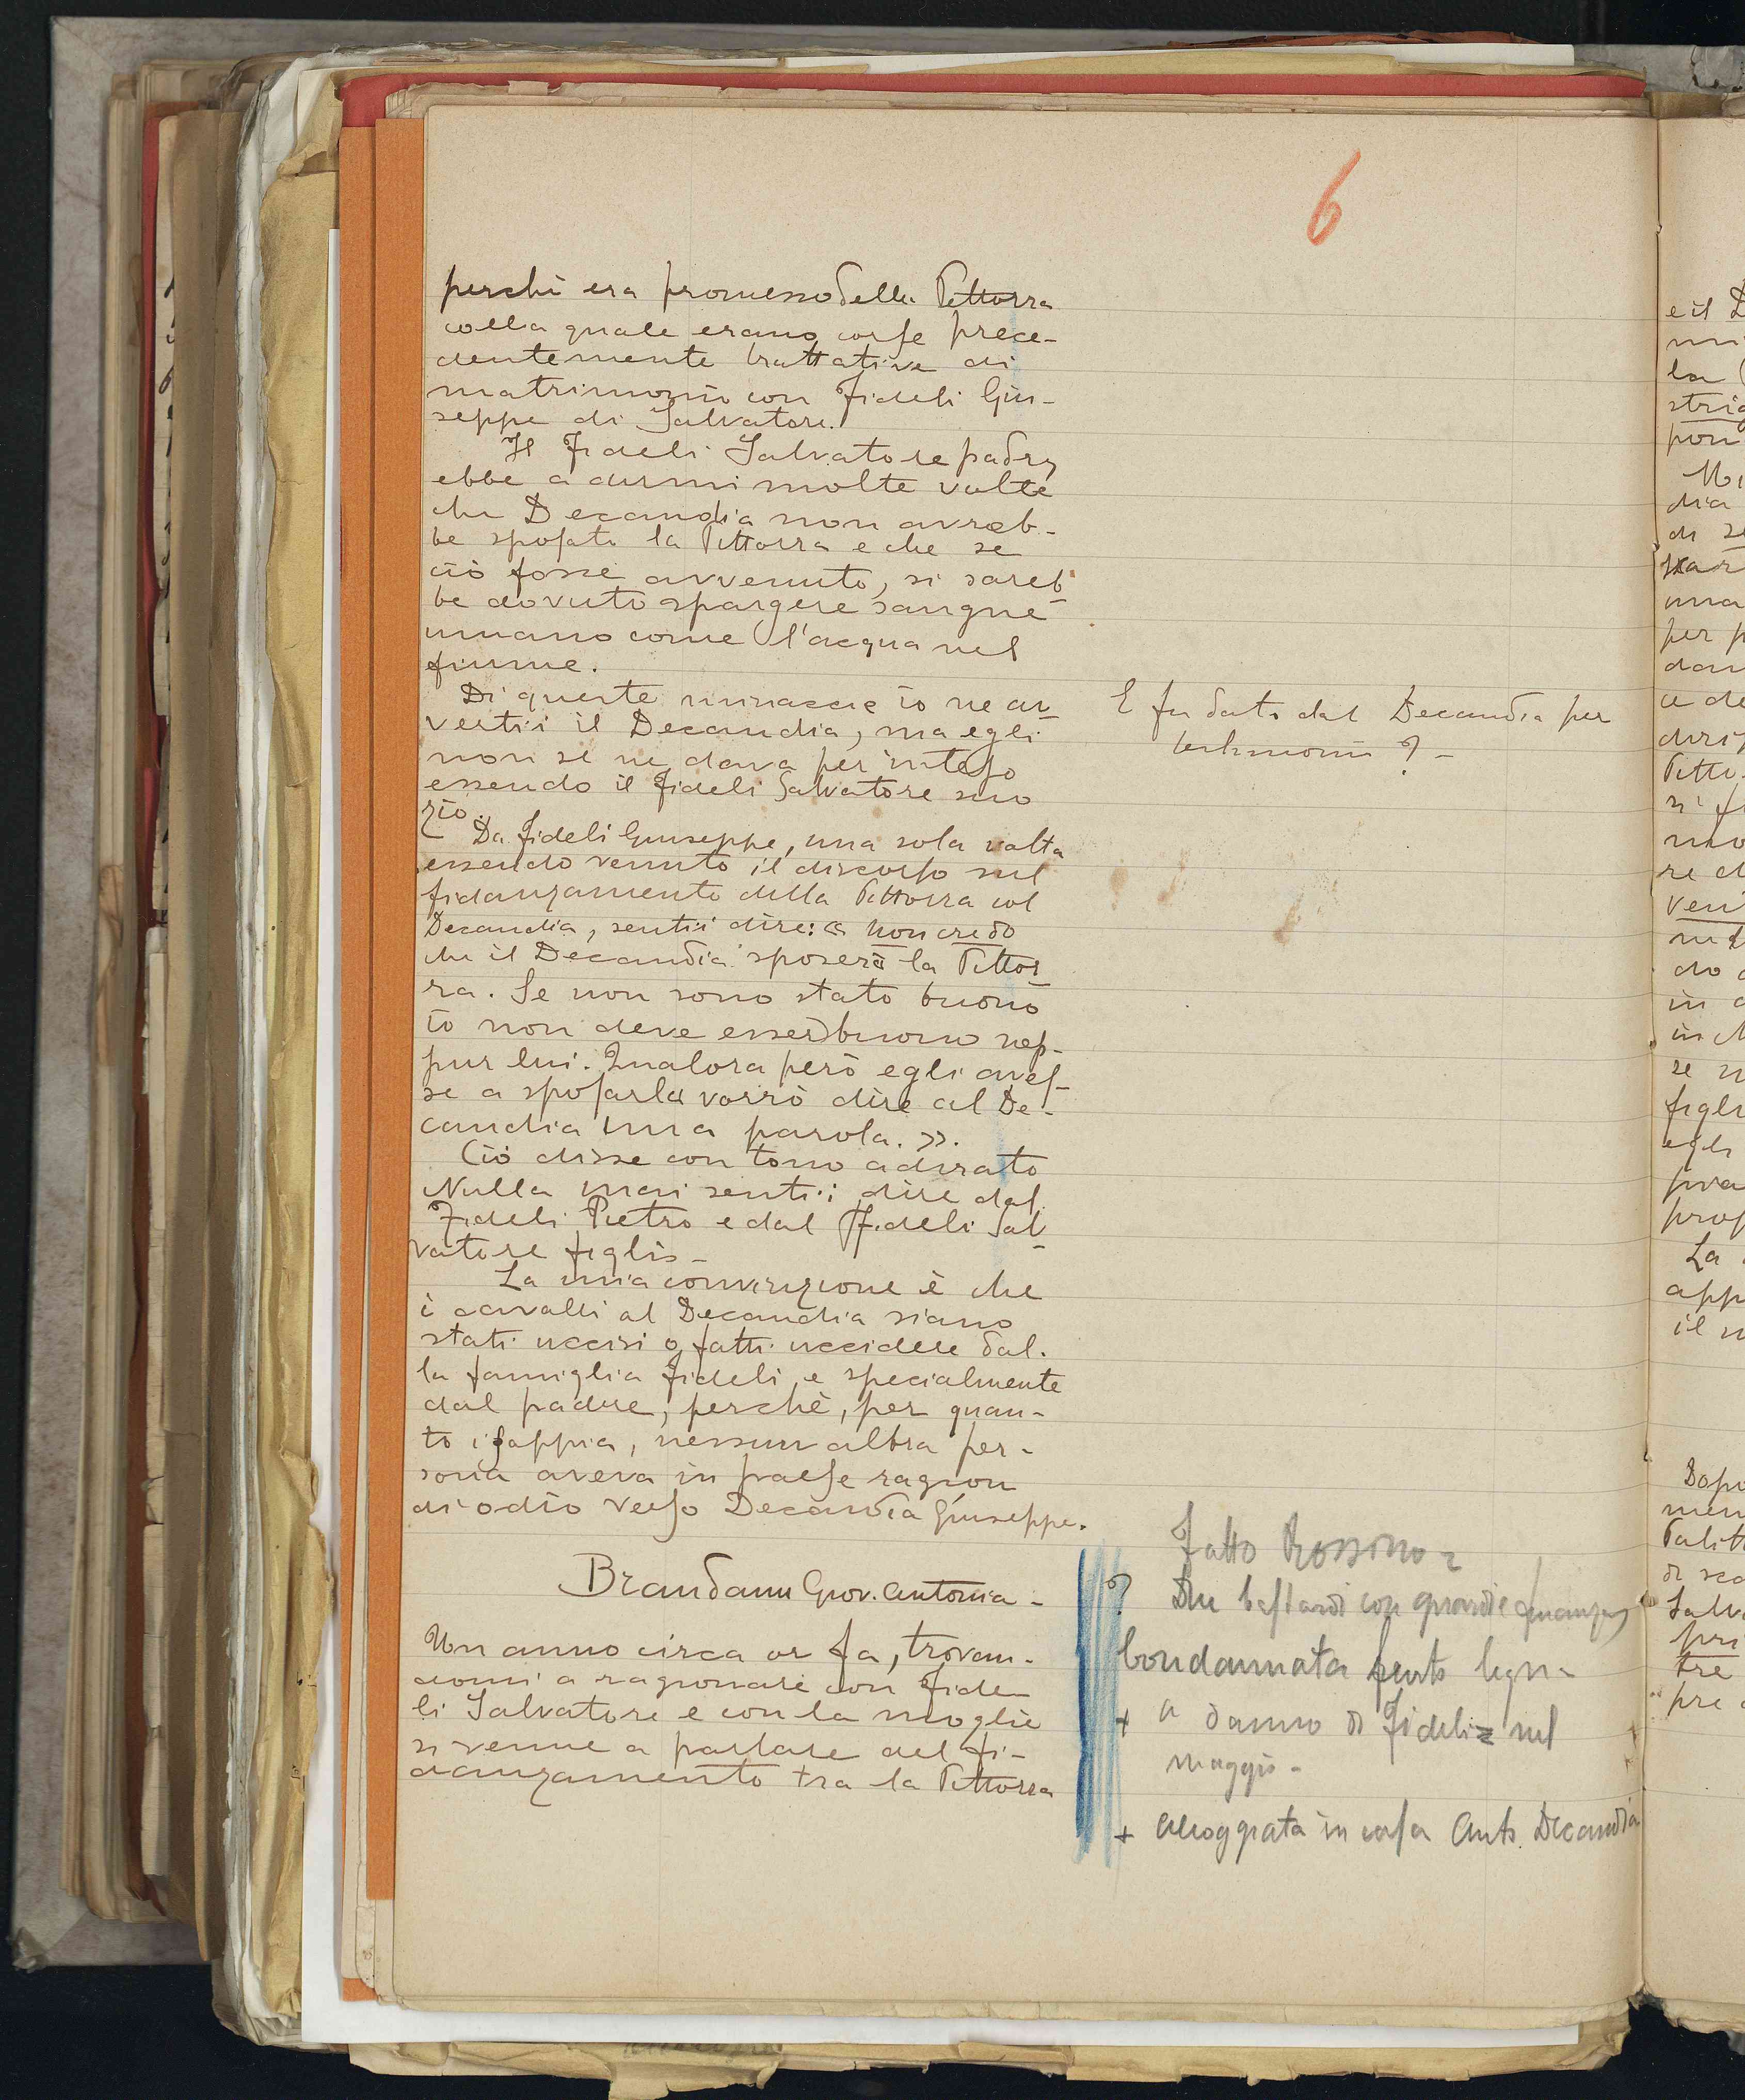 6
perchè era promesso della Pittorra
colla quale erano corse prece-
dentemente trattative di
matrimonio con Fideli Giu-
seppe di Salvatore.
Il Fideli Salvatore padre
ebbe a dirmi molte volte
che Decandia non avreb-
be sposato la Pittorra e che se
ciò fosse avvenuto, si sareb
be dovuto spargere sangue
umano come l'acqua nel
fiume.
Di queste minaccie io ne av
vertii il Decandia, ma egli
non se ne dava per inteso
essendo il Fideli Salvatore suo
zio.
E fu dato dal Decandia per
testimonii? -
Da Fideli Giuseppe, una sola volta
essendo venuto il discorso sul
fidanzamento della Pittorra col
Decandia, sentii dire: « non credo
che il Decandia sposerà la Pittor
ra. Se non sono stato buono
io non deve esser buono nep-
pur lui. Qualora però egli aves-
se a sposarla vorrò dire al De-
candia una parola. ».
Ciò disse con tono adirato
Nulla mai sentii dire dal
Fideli Pietro e dal Fideli Sal
vatore figlio -
La mia convinzione è che
i cavalli al Decandia siano
stati uccisi o fatti uccidere dal-
la famiglia Fideli, e specialmente
dal padre, perchè, per quan-
to i sappia, nessun altra per-
sona aveva in paese ragion
di odio verso Decandia Giuseppe.
Brandanu Giov. Antonia -
Un anno circa or fa, trovan-
domi a ragionare con Fide-
li Salvatore e con la moglie
si venne a parlare del fi-
danzamento tra la Pittorra
Fatto
? Due bastardi con
Condannata furto legn-
+ a danno di Fideli nel
maggio -
+ alloggiata in casa Ant. Decandia